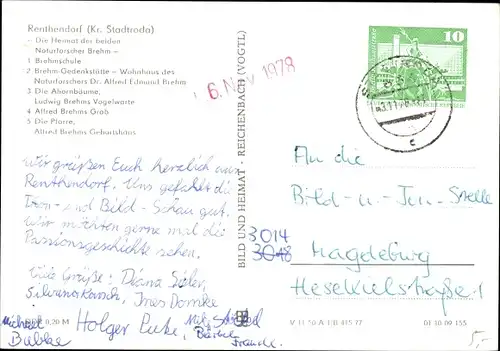 Renthendorf (Kr. Stadtroda)
- Die Heimat der beiden
Naturforscher Brehm -
1 Brehmschule
2 Brehm-Gedenkstätte - Wohnhaus des
Naturforschers Dr. Alfred Edmund Brehm
3 Die Ahornbäume,
Ludwig Brehms Vogelwarte
4 Alfred Brehms Grab
5 Die Pfarre,
Alfred Brehms Geburtshaus
Wir grüßen Euch herzlich aus
Renthendorf. Uns gefährlt die
Ton- und Bild-Schau gut.
Wir möchten gerne mal die
Passionsgeschichte sehen.
Viele Grüße: Diana
Ines
Michael Holger
Bärbel
0,20 M
BILD UND HEIMAT · REICHENBACH (VOGTL)
6. Nov. 1978
10
An die
Bild-u-Ton-Stelle
3014
3018 Magdeburg
Hesekielstraße 1
V 11 50 A 1/B 415/77
01 30 09 155
5,-